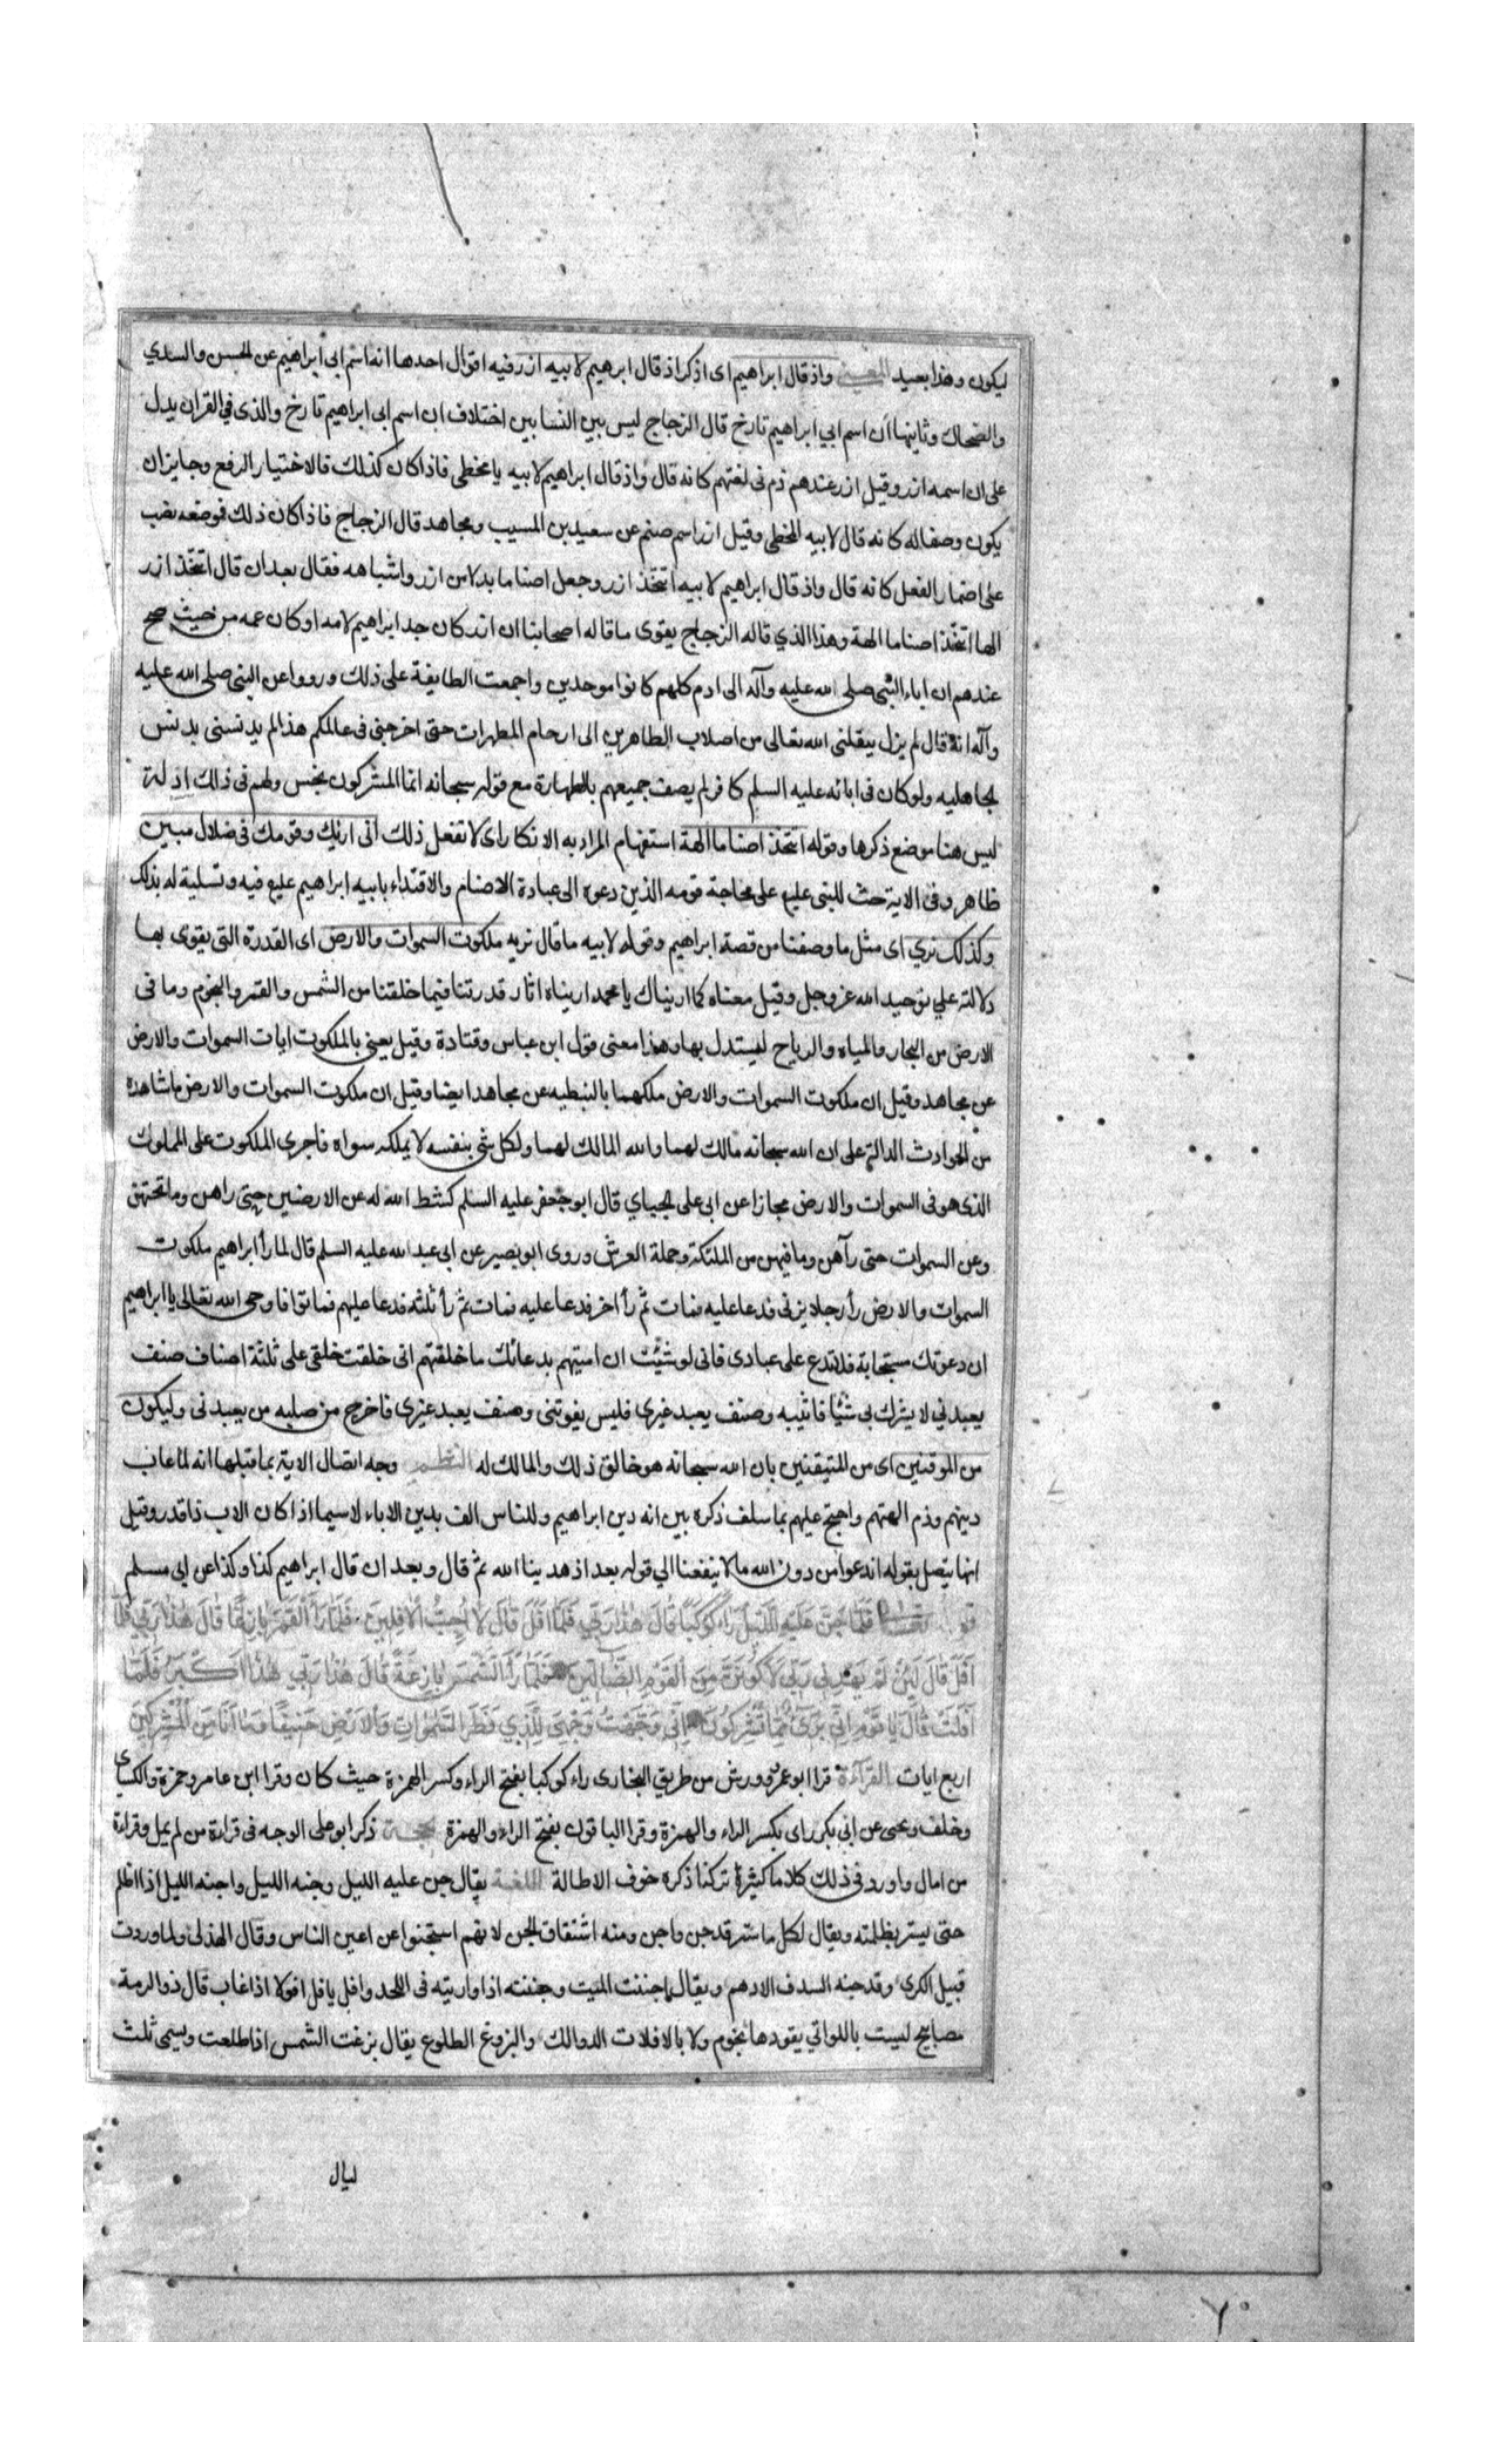 ليكون وهذا بعيد المعنى واذ قال ابراهيم اى اذكر اذ قال ابرهيم لابيه ازر فيه اقوال احدها انه اسم ابى ابراهيم عن الحسن والسدي
والضحاك وثاينها ان اسم ابي ابراهيم تارخ قال الزجاج ليس بين النسابين اختلاف ان اسم ابى ابراهيم تارخ والذى في القران يدل
على ان اسمه ازر وقيل ازر عندهم ذم فى لغتهم كانه قال واذ قال ابراهيم لابيه يا مخطى فاذا كان كذلك فالاختيار الرفع وجايز ان
يكون وصفا له كانه قال لابيه المخطى وقيل ازر اسم صنم عن سعيد بن المسيب ومجاهد قال الزجاج فاذا كان ذلك فموضعه نصب
على اضمار الفعل كانه قال واذ قال ابراهيم لابيه اتتخذ ازر وجعل اصناما بدلا من ازر واشباهه فقال بعد ان قال اتتخذ ازر
الها اتتخذ اصناما الهة وهذا الذي قاله الزجاج يقوى ما قاله اصحابنا ان ازر كان جد ابراهيم لامه او كان عمه من حيث صح
عندهم ان اباء النبى صلى الله عليه وآله الى ادم كلهم كانوا موحدين واجمعت الطايفة على ذلك ورووا عن النبى صلى الله عليه
وآله انه قال لم يزل ينقلنى الله تعالى من اصلاب الطاهرين الى ارحام المطهرات حتى اخرجنى فى عالمكم هذا لم يدنسنى بدنس
الجاهليه ولو كان فى ابائه عليه السلم كافر لم يصف جميعهم بالطهارة مع قوله سبحانه انما المشركون نجس ولهم فى ذلك ادلة
ليس هنا موضع ذكرها وقوله اتتخذ اصناما الهة استفهام المراد به الانكار اى لا تفعل ذلك انى اريك وقومك فى ضلال مبين
ظاهر وفى الاية حث للنبى عليه على محاجة قومه الذين دعوه الى عبادة الاصنام والاقتداء بابيه ابراهيم عليه فيه وتسلية له بذلك
وكذلك نري اى مثل ما وصفنا من قصة ابراهيم وقوله لابيه ما قال نريه ملكوت السموات والارض اى القدرة التى يقوى بها
دلالته علي توحيد الله عز وجل وقيل معناه كما اريناك يا محمد اريناه اثار قدرتنا فيما خلقنا من الشمس والقمر والنجوم وما فى
الارض من البحار والمياه والرياح ليستدل بها وهذا معنى قول ابن عباس وقتادة وقيل يعنى بالملكوت ايات السموات والارض
عن مجاهد وقيل ان ملكوت السموات والارض ملكهما بالنبطيه عن مجاهد ايضا وقيل ان ملكوت السموات والارض ما شاهده
من الحوادث الدالة على ان الله سبحانه مالك لهما والله المالك لهما ولكل شى بنفسه لا يملكه سواه فاجرى الملكوت على المملوك
الذى هو فى السموات والارض مجازا عن ابى على الجبياي قال ابو جعفر عليه السلم كشط الله له عن الارضين حتى راهن وما تحتهن
وعن السموات حتى رآهن وما فيهن من الملئكة وحملة العرش وروى ابو بصير عن ابى عبد الله عليه السلم قال لما رأ ابراهيم ملكوت
السموات والارض رأ رجلا يزنى فدعا عليه فمات ثم رأ اخر فدعا عليه فمات ثم رأ ثلثه فدعا عليهم فماتوا فاوحى الله تعالى يا ابراهيم
ان دعوتك مستجابة فلا تدع على عبادى فانى لو شئت ان اميتهم بدعائك ما خلقتهم انى خلقت خلقى على ثلثة اصناف صنف
يعبدني لا يشرك بى شئيا فاثيبه وصنف يعبد غيرى فليس يفوتنى وصنف يعبد غيرى فاخرج من صلبه من يعبدنى وليكون
من الموقنين اى من المتيقنين بان الله سبحانه هو خالق ذلك والمالك له النظم وجه اتصال الاية بما قبلها انه لما عاب
دينهم وذم الهتهم واحتج عليهم بما سلف ذكره بين انه دين ابراهيم وللناس الف بدين الاباء لا سيما اذا كان الاب ذا قدر وقيل
انها يتصل بقوله اندعوا من دون الله ما لا ينفعنا الي قوله بعد اذ هدينا الله ثم قال وبعد ان قال ابراهيم كذا وكذا عن ابى مسلم
قوله تعالى فَلَمَّا جَنَّ عَلَيْهِ اللَّيْلُ رَاٰ كَوْكَبًا قَالَ هٰذَا رَبِّي فَلَمَّا اَفَلَ قَالَ لَا اُحِبُّ الْاٰفِلِينَ فَلَمَّا رَاَ الْقَمَرَ بَازِغًا قَالَ هٰذَا رَبِّي فَلَمَّا
اَفَلَ قَالَ لَئِنْ لَمْ يَهْدِنِي رَبِّي لَاَكُونَنَّ مِنَ الْقَوْمِ الضَّالِّينَ فَلَمَّا رَاَ الشَّمْسَ بَازِغَةً قَالَ هٰذَا رَبِّي هٰذَا اَكْبَرُ فَلَمَّا
اَفَلَتْ قَالَ يَا قَوْمِ اِنِّي بَرِيءٌ مِمَّا تُشْرِكُونَ اِنِّي وَجَّهْتُ وَجْهِيَ لِلَّذِي فَطَرَ السَّمٰوَاتِ وَالْاَرْضَ حَنِيفًا وَمَا اَنَا مِنَ الْمُشْرِكِينَ
اربع ايات القراءة قرا ابو عمرو وورش من طريق البخارى راء كوكبا بفتح الراء وكسر الهمزة حيث كان وقرا ابن عامر وحمزة والكساى
وخلف ويحيى عن ابي بكر راى بكسر الراء والهمزة وقرا الباقون بفتح الراء والهمزة الحجة ذكر ابو على الوجه فى قراءة من لم يمل وقراءة
من امال واورد فى ذلك كلاما كثيرا تركنا ذكره خوف الاطالة اللغة يقال جن عليه الليل وجنه الليل واجنه الليل اذا اظلم
حتى يستر بظلمته ويقال لكل ما ستر قد جن واجن ومنه اشتقاق الجن لانهم استجنوا عن اعين الناس وقال الهذلى ولما وردت
قبيل الكرى وقد جنه السدف الادهم ويقال اجننت الميت وجننته اذا واريته فى اللحد وافل يافل افولا اذا غاب قال ذو الرمة
مصابيح ليست باللواتي يقودها نجوم ولا بالافلات الدوالك والبزوغ الطلوع يقال بزغت الشمس اذا طلعت ويسمى ثلث
ليال